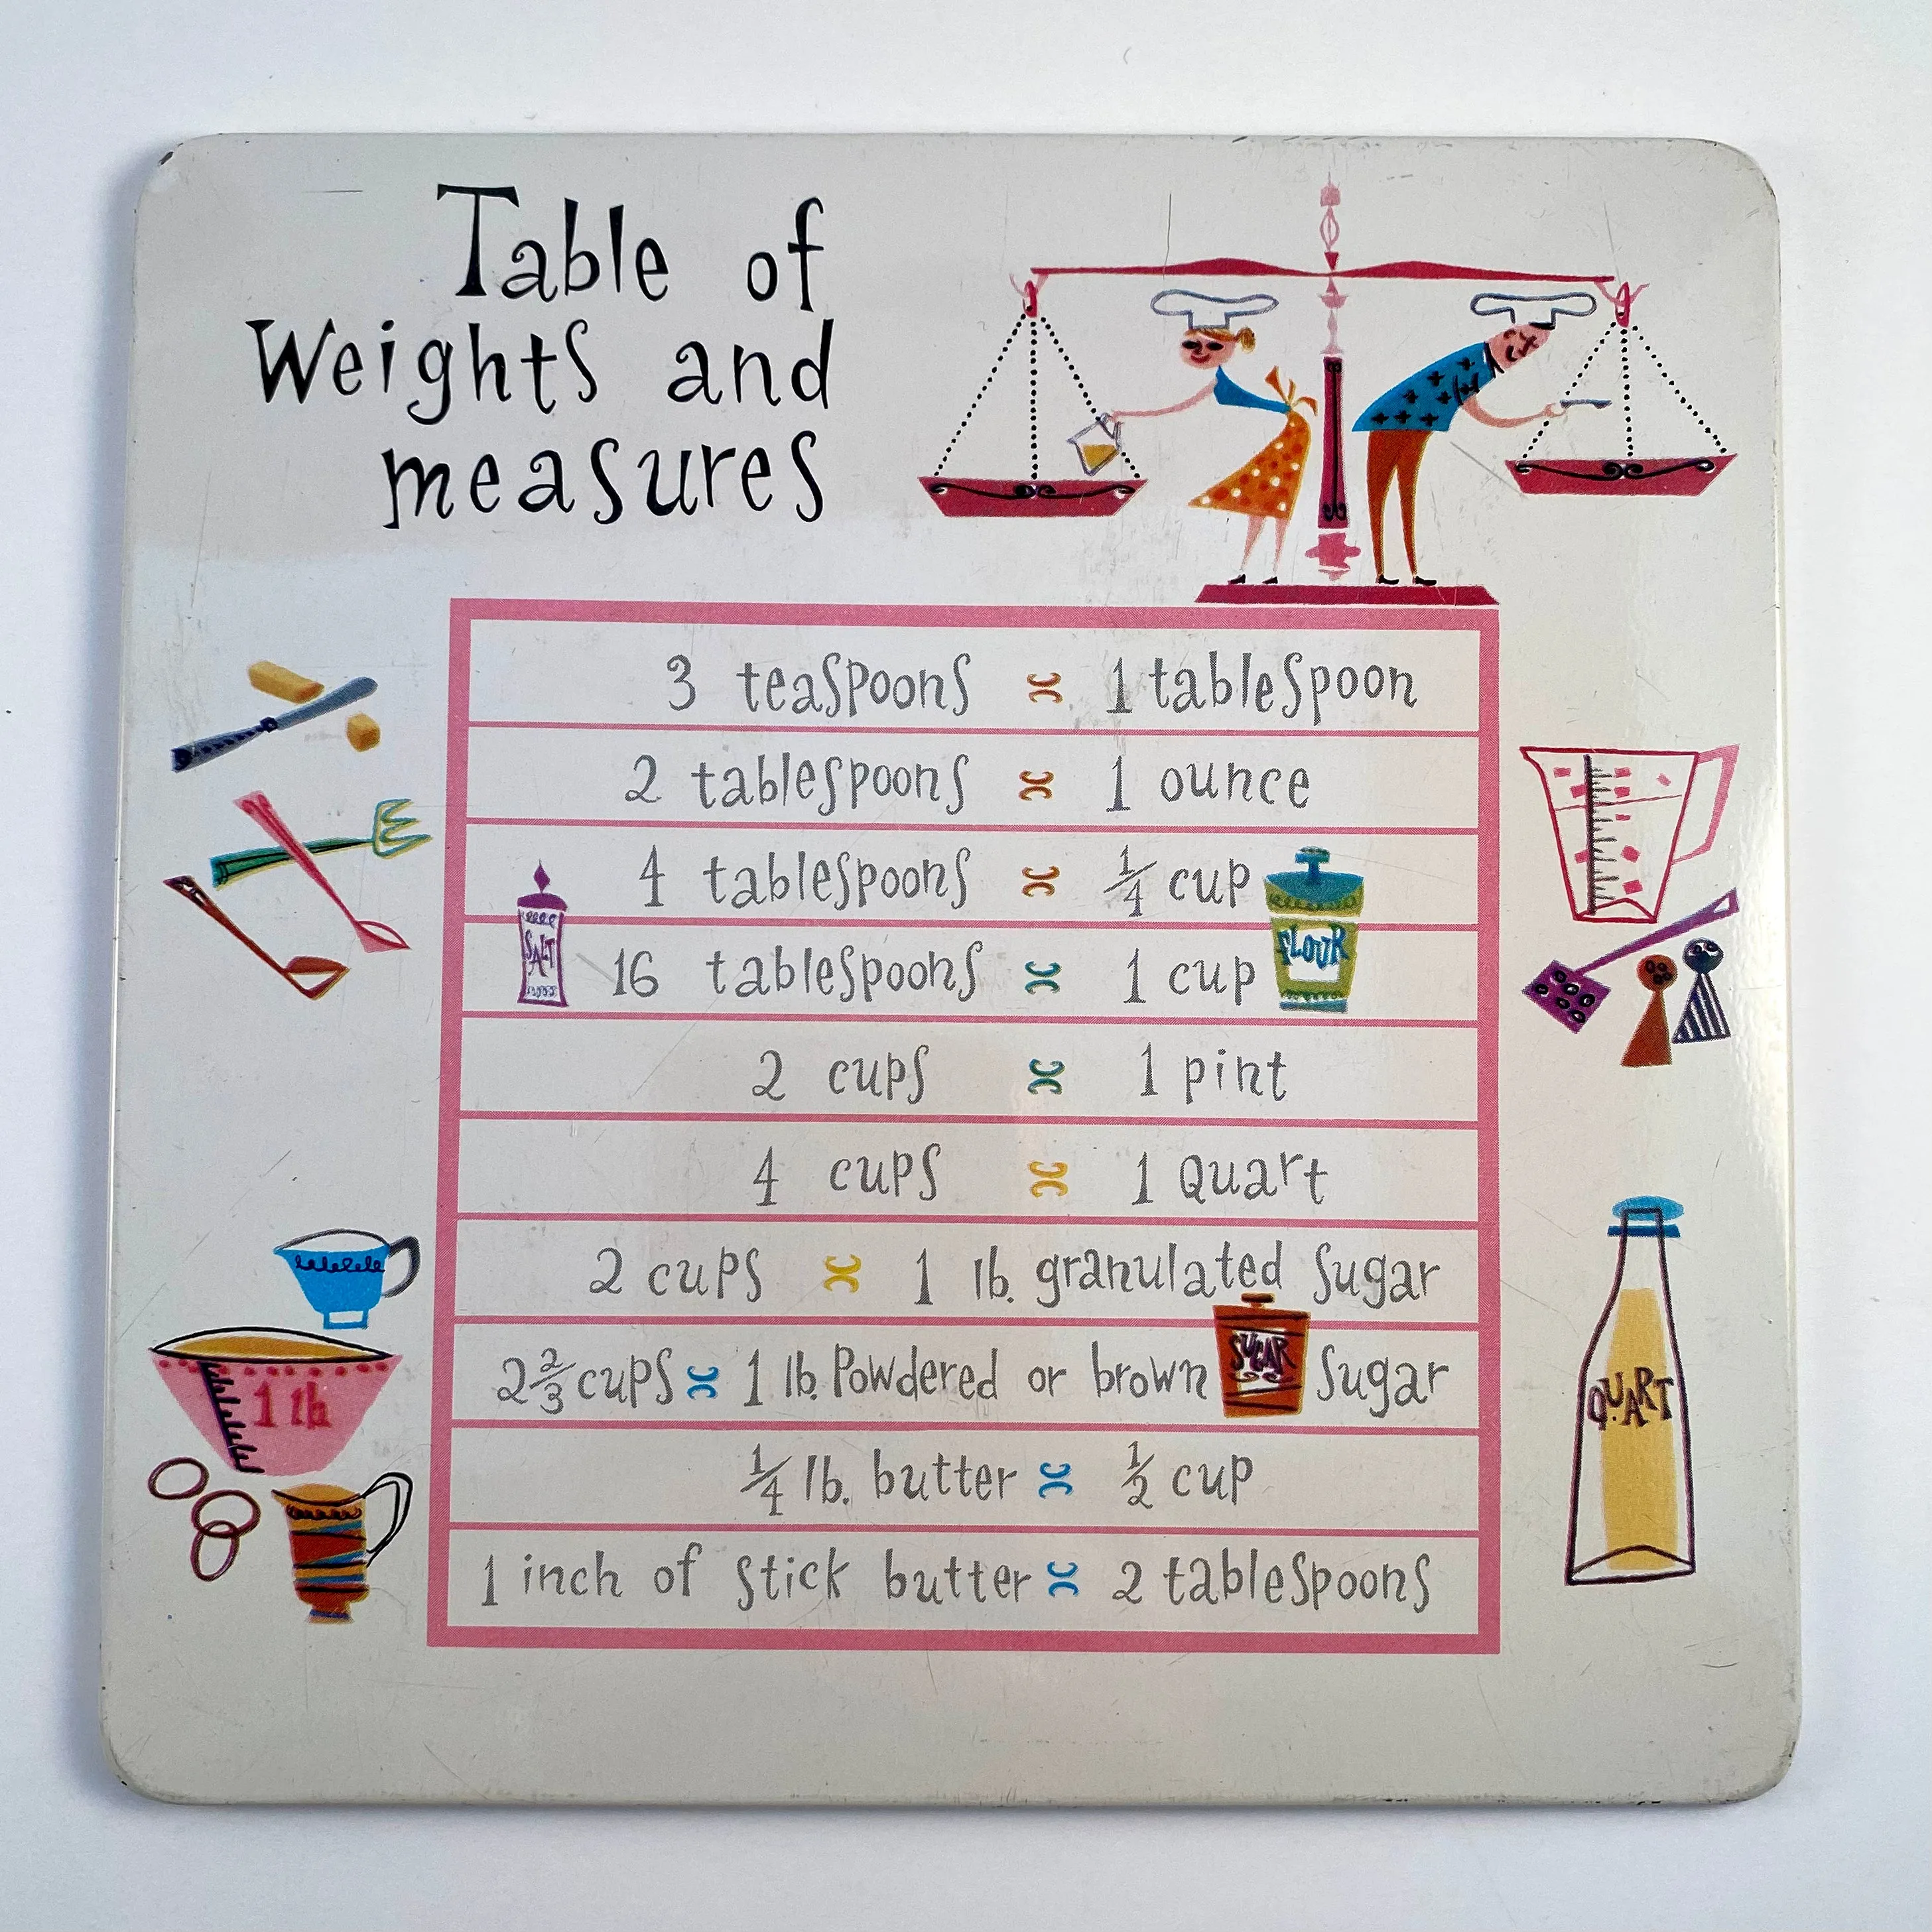 Table of
Weights and
measures
3 teaspoons = 1 tablespoon
2 tablespoons = 1 ounce
4 tablespoons = 1/4 cup
SALT
16 tablespoons = 1 cup
FLOUR
2 cups = 1 pint
4 cups = 1 Quart
2 cups = 1 lb. granulated sugar
2 2/3 cups = 1 lb. Powdered or brown sugar
SUGAR
1/4 lb. butter = 1/2 cup
1 inch of stick butter = 2 tablespoons
1 lb
QUART